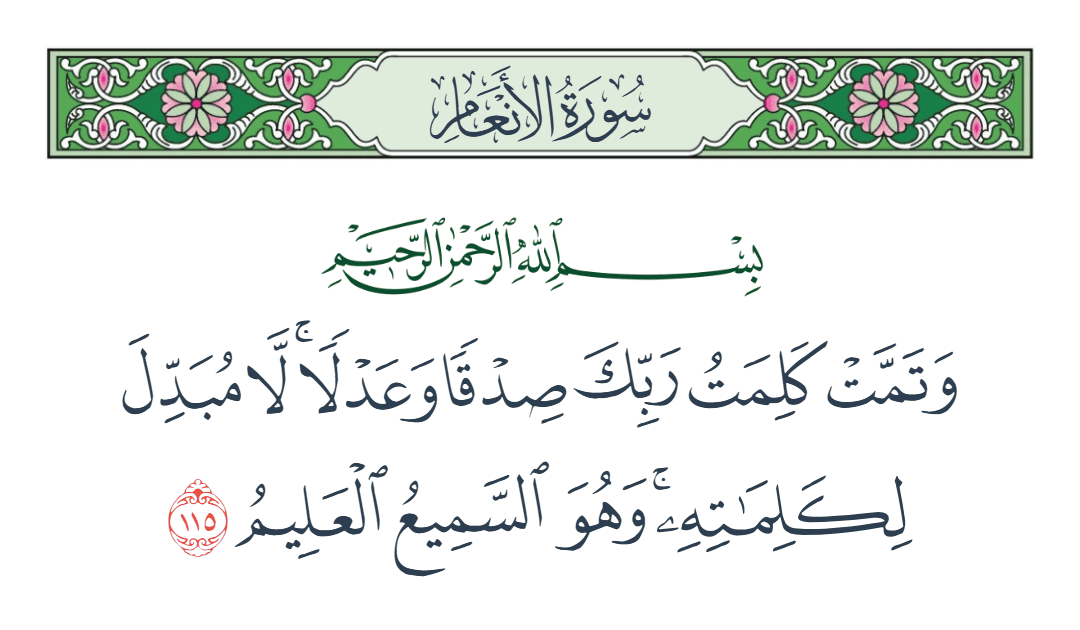 سُورَةُ الأَنْعَامِ
بِسْمِ ٱللَّهِ ٱلرَّحْمَٰنِ ٱلرَّحِيمِ
وَتَمَّتْ كَلِمَتُ رَبِّكَ صِدْقًا وَعَدْلًا ۚ لَّا مُبَدِّلَ
لِكَلِمَٰتِهِۦ ۚ وَهُوَ ٱلسَّمِيعُ ٱلْعَلِيمُ ١١٥